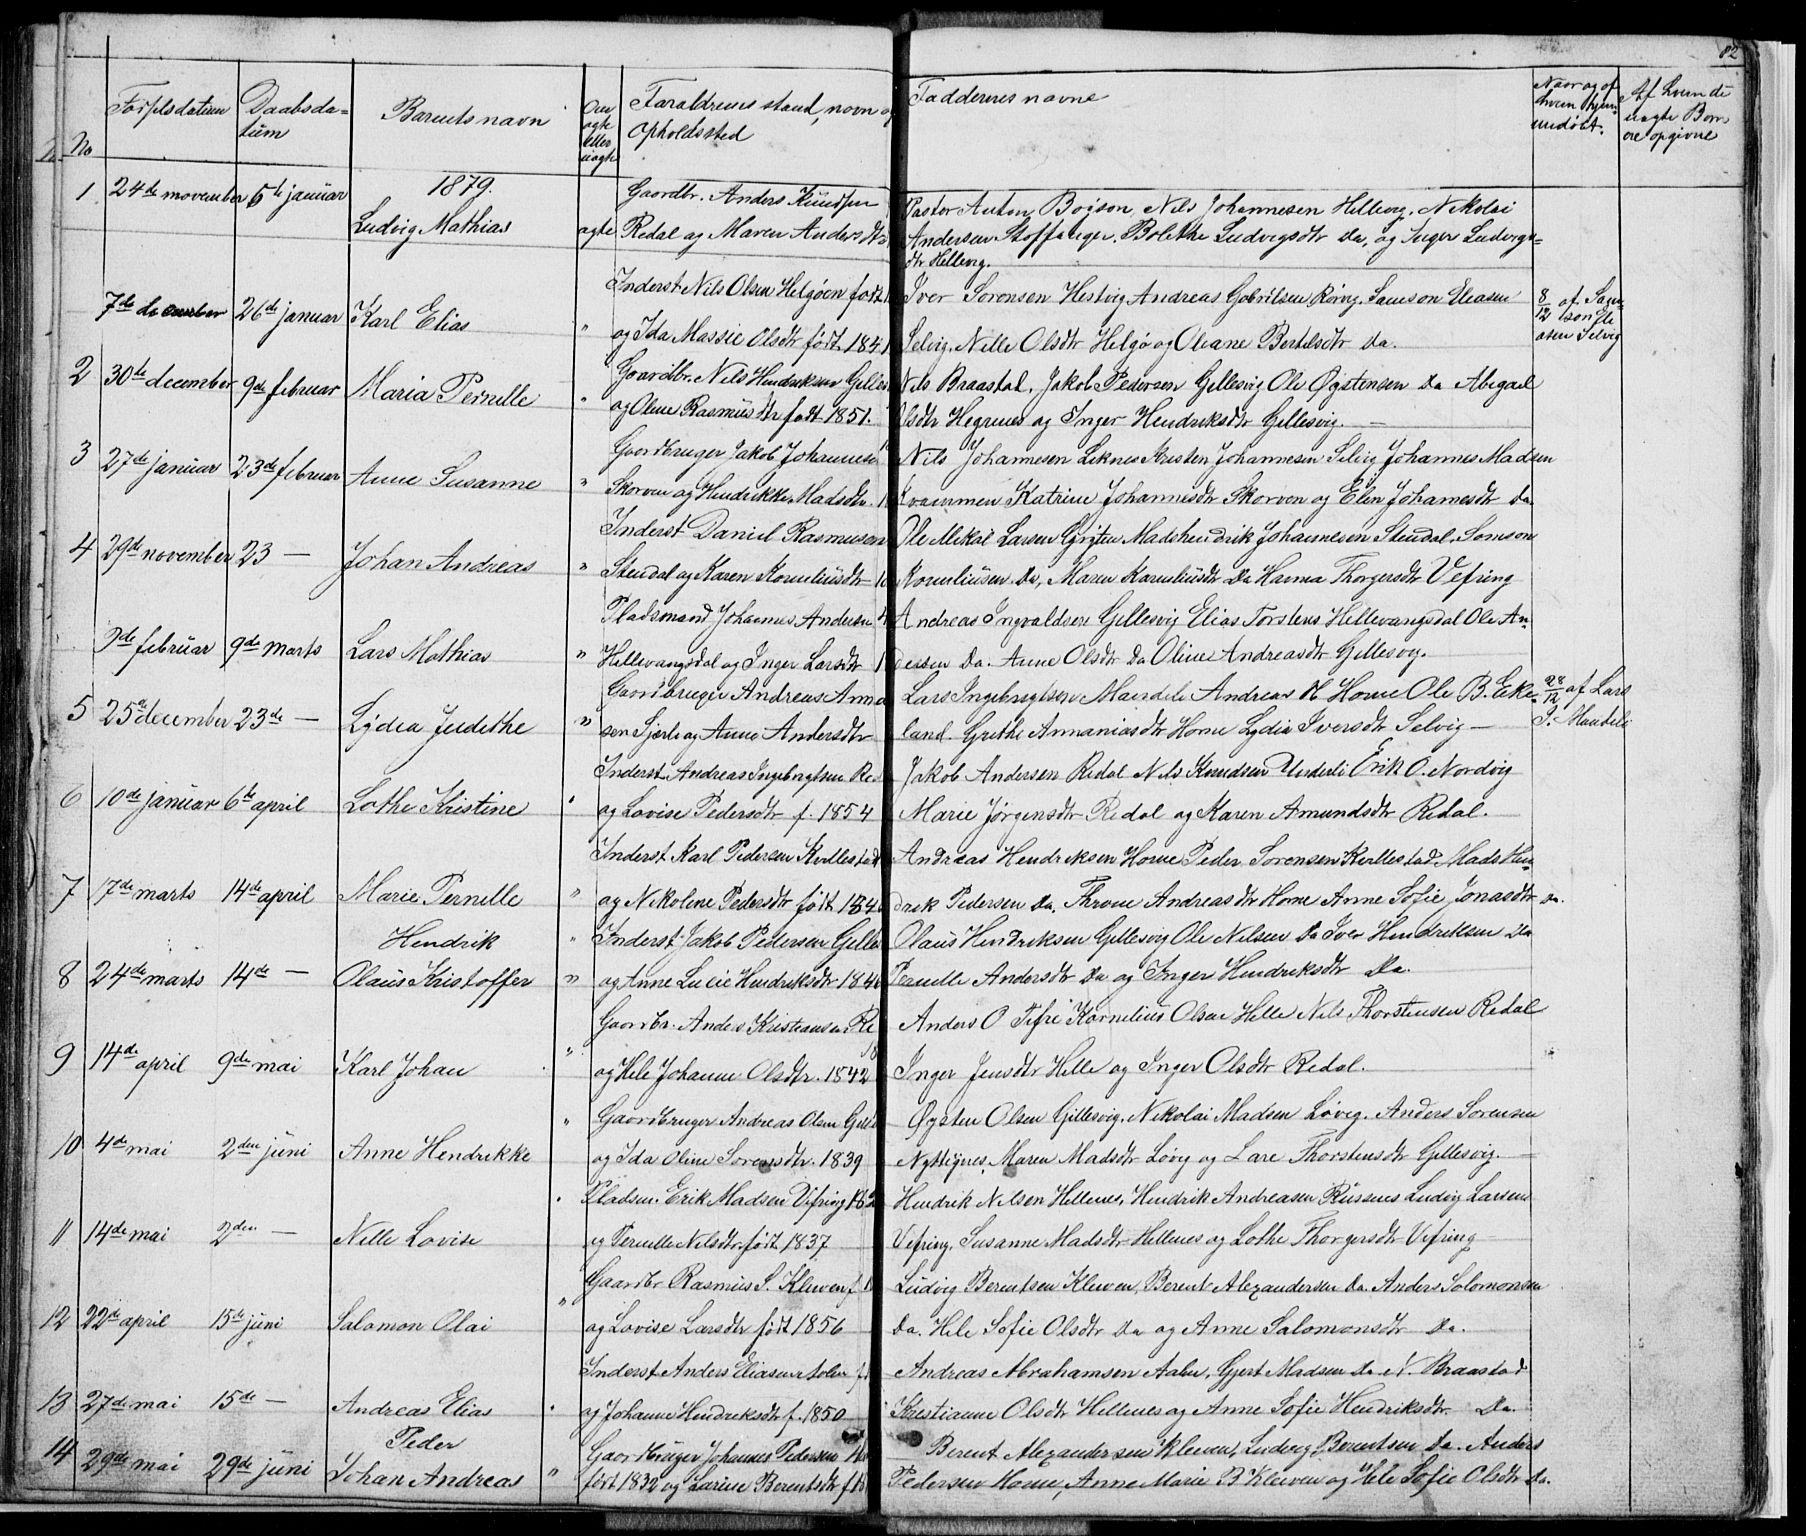 82
No
Fødselsdatum
Daabsdatum
Barnets navn
Om ægte eller uægte
Forældrenes stand, navn og opholdssted
Faddernes navne
Naar og af hvem hjemmedøbt.
Af hvem de uægte Børn ere opgivne
1879.
1 24de november 5te januar Ludvig Mathias ægte
Gaardbr. Anders Knudsen
Redal og Maren Andersdtr
Pastor Anton Boison, Nils Johannesen Hellevig, Nikolai
Andersen Stoffa Bolethe Ludvigsdtr Do, og Inger Ludvigs=
dtr Hellevig.
7de december 26de januar Karl Elias "
Inderst Nils Olsen Helgøen født
og Ida Massie Olsdtr født 1841
Iver Sørensen Hestvig Andreas Gabrilsen Rørvig, Samson Eleasen
Selvig, Nille Olsdtr Helgø og Oleane Bertelsdtr Do.
8/12 af Sam
son Ele
asen Selvig
2 30de december 9de februar Maria Pernille "
Gaardbr. Nils Hendriksen Gilles
og Oline Rasmusdtr født 1851.
Nils Braastad, Jakob Pedersen Gillesvig Ole Øystensen Do Abigael
Olsdtr Hegrenes og Inger Hendriksdtr Gillesvig. —
3 27de januar 23de februar Anne Susanne "
Gaardbruger Jakob Johannesen
Skorven og Hendrikke Madsdtr. 1
Nils Johannesen Leknes Kristen Johannesen Selvig Johannes Madsen
Kvammen Katrine Johannesdtr Skorven og Elen Johannesdtr Do
4 29de november 23 — Johan Andreas "
Inderst Daniel Rasmusen
Stendal og Karen Korneliusdtr
Ole Mikal Larsen Grytten Mads hendrik Johannesen Stendal, Somson
Korneliusen Do, Maren Korneliusdtr Do Hanna Thorgersdtr Vefring
9de februar 9de marts Lars Mathias "
Pladsmand Johannes Andersen
Hellevangsdal og Inger Larsdtr
Andreas Ingvaldsen Gillesvig Elias Torstens Hellevangsdal Ole An=
dersen Do. Anne Olsdtr Do Oline Andreasdtr Gillesvig.
5 25de december 23de — Lydea Judithe "
Gaardbruger Andreas Anna
sen Sjærli og Anne Andersdtr
Lars Ingebrigtsen Maendeli Andreas H Horne Ole B. Eike=
land. Grethe Annaniasdtr Horne Lydia Iversdtr Selvig —
28/12 af Lars
I. Maendeli
6 10de januar 6te april Lothe Kristine "
Inderst Andreas Ingebrigtsen Re
og Lovise Pedersdtr f. 1854
Jakob Andersen Redal Nils Knudsen Underli Erik O. Nordvig
Marie Jørgensdtr Redal og Karen Amundsdtr Redal.
7 17de marts 14de april Marie Pernille "
Inderst Karl Pedersen Kvellestad
og Nikoline Pedersdtr født 184
Andreas Hendriksen Horne Peder Sørensen Kvellestad Mads Hen=
drik Pedersen Do, Throne Andreasdtr Horne Anne Sofie Jonasdtr Do.
8 24de marts 14de — Hendrik
Olaus Kristoffer "
Inderst Jakob Pedersen Gilles
og Anne Lucie Hendriksdtr 184
Olaus Hendriksen Gillesvig Ole Nilsen Do Iver Hendriksen Do
Pernille Andersdtr Do og Inger Hendriksdtr Do.
9 14de april 9de mai Karl Johan "
Gaardbr. Anders Kristiansen Re
og Hele Johanne Olsdtr. 1842
Anders O Tefre Kornelius Olsen Hille Nils Thorstensen Redal
Inger Jensdtr Hille og Inger Olsdtr Redal.
10 4de mai 2den juni Anne Hendrikke "
Gaardbruger Andreas Olsen Gill
og Ida Oline Sørensdtr. 1839
Øysten Olsen Gillesvig, Nikolai Madsen Løvig. Anders Sørensen
Nyttignes, Maren Madsdtr Løvig og Lare Thorstensdtr Gillesvig. —
11 14de mai 2den — Nille Lovise "
Pladsm. Erik Madsen Vefring
og Pernille Nilsdtr født 1837
Hendrik Nilsen Hellenes, Hendrik Andreasen Russenes Ludvig Larsen
Vefring, Susanne Madsdtr Hellenes og Lothe Thorgersdtr Vefring
12 22de april 15de juni Salomon Olai "
Gaardbr Rasmus S. Kleiven f. 1
og Lovise Larsdtr født 1856
Ludvig Berentsen Kleiven, Berent Alexandersen Do. Anders Solomonsen
Do. Hele Sofie Olsdtr Do og Anne Salomonsdtr Do.
13 27de mai 15de — Andreas Elias "
Inderst Anders Eliasen Aalen
og Johanne Hendriksdtr f. 1850
Andreas Abrahamsen Aalen, Gjert Madsen Do N. Braastad
Kristianne Olsdtr Hellenes og Anne Sofie Hendriksdtr. Do.
14 29de mai 29de juni Peder
Johan Andreas "
Gaardbruger Johannes Pedersen Ho
født 1832 og Larine Berentsdtr f.
Berent Alexandersen Kleiven, Ludvig Berentsen Do. Anders
Pedersen Horne, Anne Marie B. Kleiven og Hele Sofie Olsdtr Do.